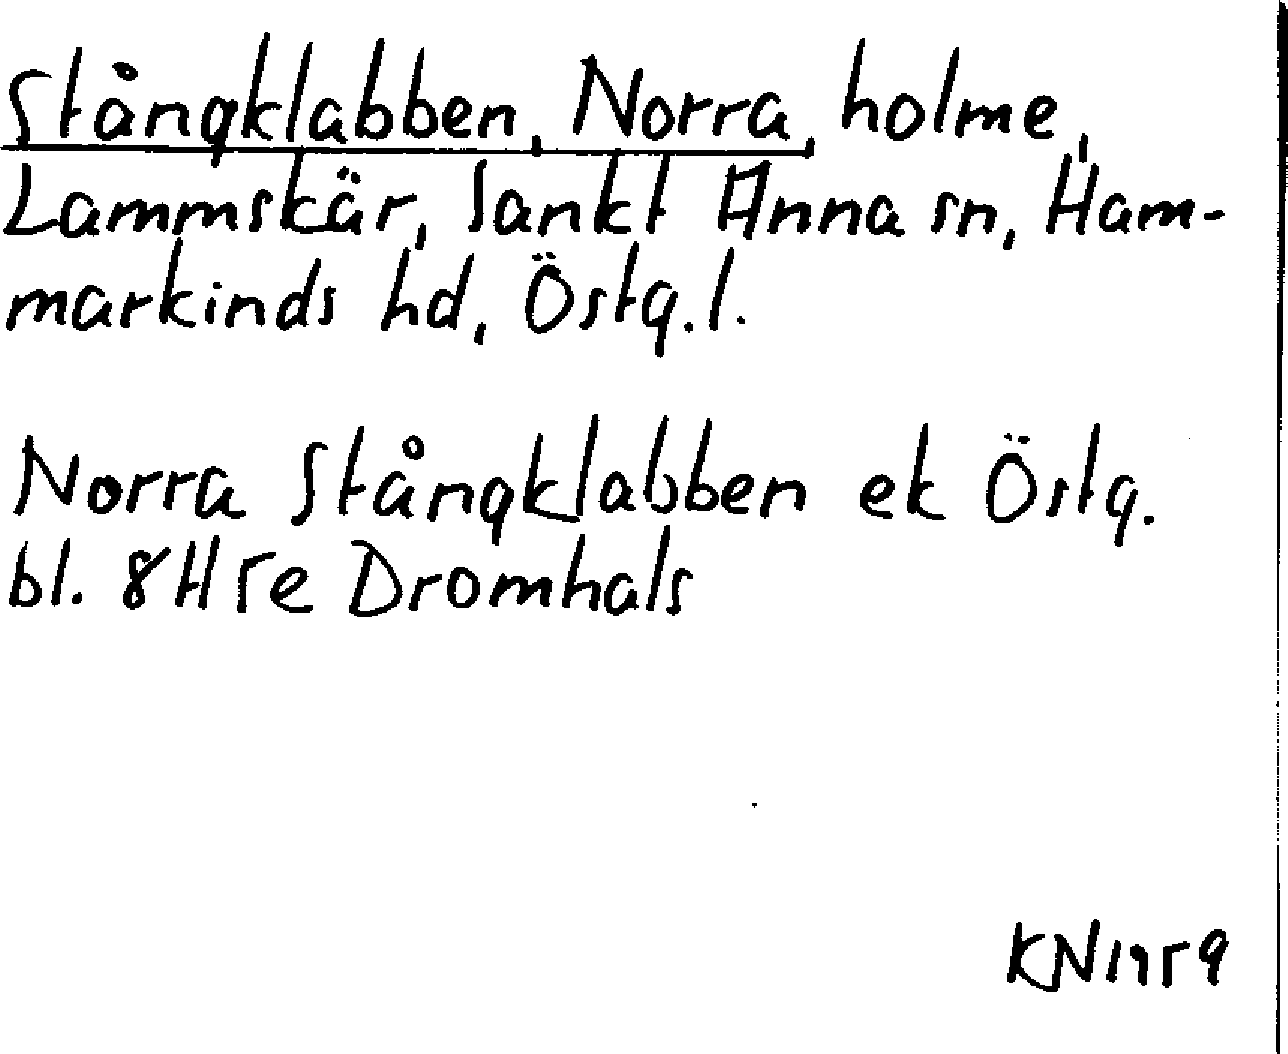 Stångklabben, Norra, holme,
Lammskär, Sankt Anna sn, Ham-
markinds hd, Östg.l.
Norra Stångklabben ek Östg.
bl. 8H5e Dromhals
KN1959